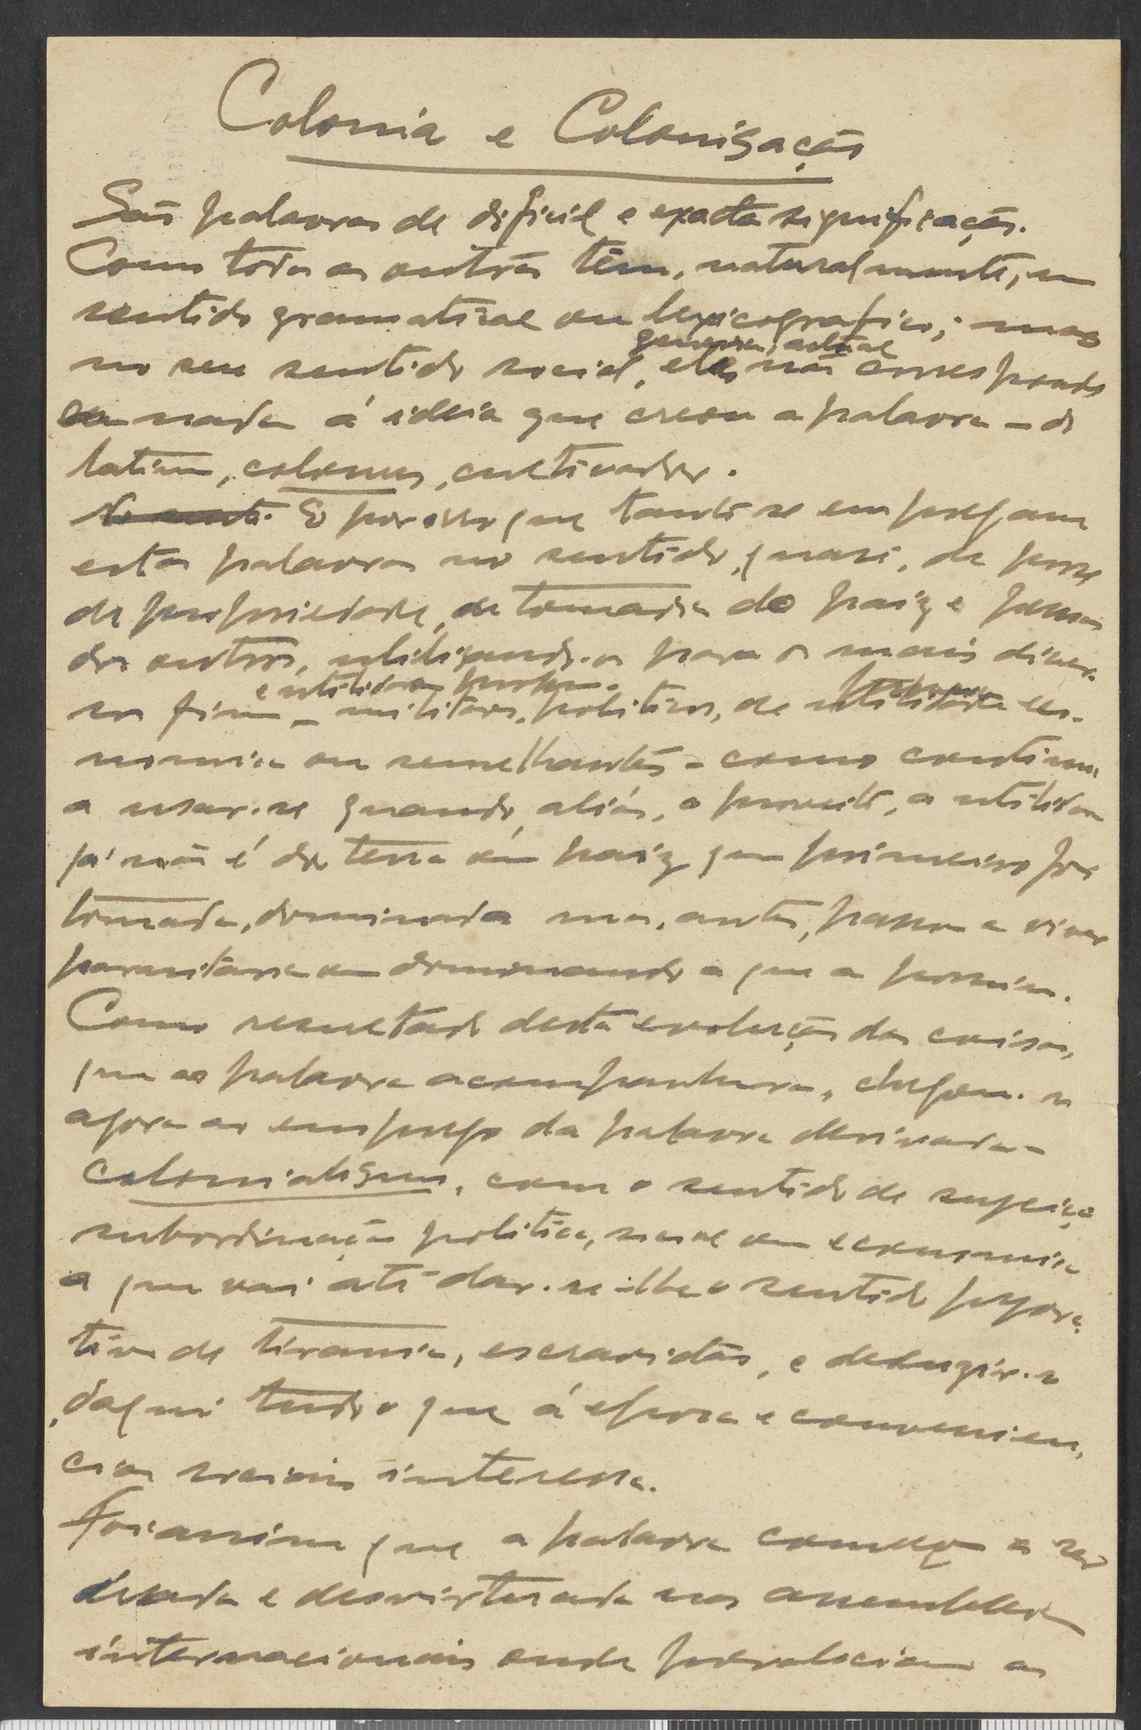 Colonia e Colonisação
São palavras de dificil e exacta significação.
Como todas as outras têm, naturalmente, um
sentido gramatical ou lexicografico; mas
no seu sentido social, elas não corresponde
generico, actual
em nada á ideia que creou a palavra - do
latim, colonus, cultivador.
E por isso que tanto se empregam
estas palavras no sentido, quasi, de posse
de propriedade, de tomadia do paiz e
dos outros, utilisando-os para os mais diver-
sos fins - militares, politicos, de utilidade eco-
e utilidade
nomica ou semelhantes - como continua
a usar-se quando, aliás, o proveito, a utilidade
já não é da terra ou paiz que primeiro foi
tomada, dominada mas, antes, passa a viver
parasitaria ou dominando a que a possuia.
Como resultado desta evolução das coisas,
que as palavras acompanharam, chegou-se
agora ao emprego da palavra derivada -
colonialismo, com o sentido de sujeição
subordinação politica, social ou economica
a que vai até dar-se-lhe o sentido pejora-
tivo de tirania, escravidão, e deduzir-se
daqui tudo o que á epoca e convenien-
cias sociais interessa.
Foi assim que a palavra começou a ser
usada e desvirtuada nas assembleias
internacionais onde prevaleciam as